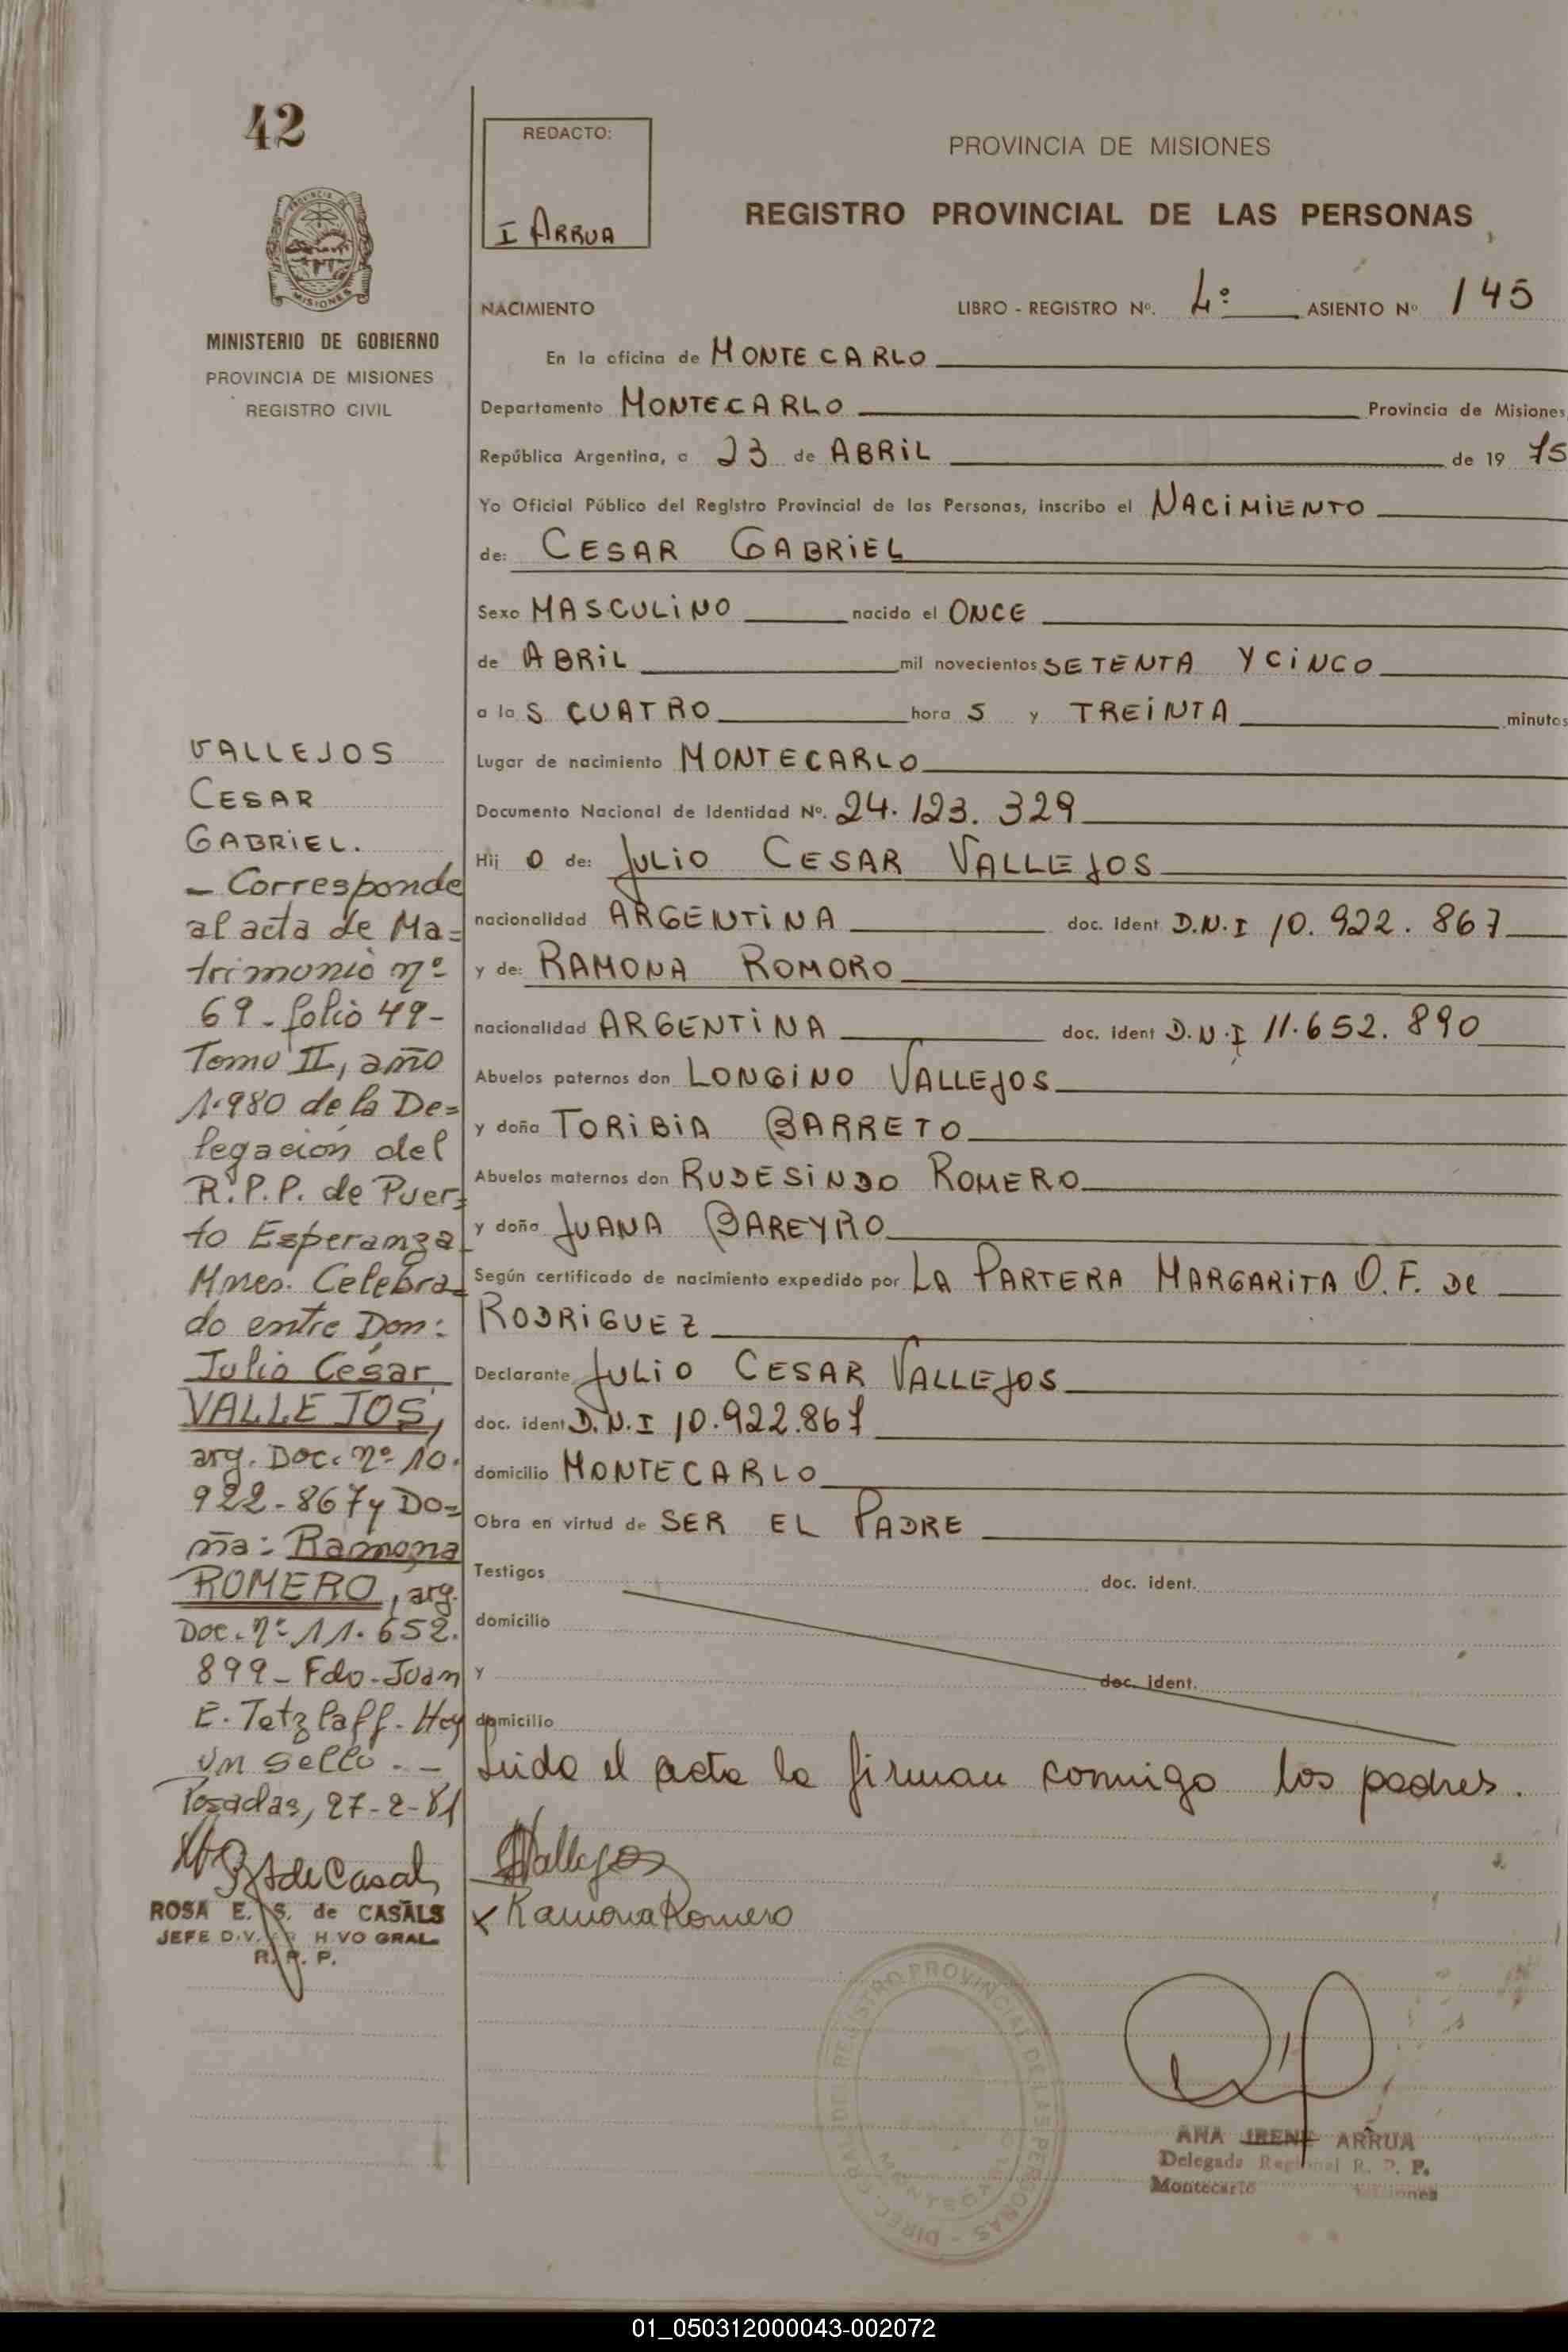 42
PROVINCIA DE
MISIONES
MINISTERIO DE GOBIERNO
PROVINCIA DE MISIONES
REGISTRO CIVIL
VALLEJOS
CESAR
GABRIEL.
- Corresponde
al acta de Ma=
trimonio nº
69 - folio 49 -
Tomo II, año
1.980 de la De=
legación del
R.P.P. de Puer=
to Esperanza
Mnes. Celebra=
do entre Don:
Julio César
VALLEJOS,
arg. Doc. nº 10.
922-867 y Do=
ña: Ramona
ROMERO, arg.
Doc. nº 11.652.
899 - Fdo - Juan
E. Tetzlaff - Hay
un sello. -
Posadas, 27-2-81
de Casals
ROSA E. S. de CASALS
JEFE DIV. H VO GRAL.
R. P. P.
REDACTO:
I ARRUA
PROVINCIA DE MISIONES
REGISTRO PROVINCIAL DE LAS PERSONAS
NACIMIENTO LIBRO - REGISTRO Nº. 4º ASIENTO Nº 145
En la oficina de MONTECARLO
Departamento MONTECARLO Provincia de Misiones,
República Argentina, a 23 de ABRIL de 19 75
Yo Oficial Público del Registro Provincial de las Personas, inscribo el NACIMIENTO
de: CESAR GABRIEL
Sexo MASCULINO nacido el ONCE
de ABRIL mil novecientos SETENTA Y CINCO
a la S CUATRO hora S y TREINTA minutos
Lugar de nacimiento MONTECARLO
Documento Nacional de Identidad Nº. 24.123.329
Hij O de: JULIO CESAR VALLEJOS
nacionalidad ARGENTINA doc. ident D.N.I 10.922.867
y de: RAMONA ROMORO
nacionalidad ARGENTINA doc. ident D.N.I 11.652.890
Abuelos paternos don LONGINO VALLEJOS
y doña TORIBIA BARRETO
Abuelos maternos don RUDESINDO ROMERO
y doña JUANA BAREYRO
Según certificado de nacimiento expedido por LA PARTERA MARGARITA O. F. DE
RODRIGUEZ
Declarante JULIO CESAR VALLEJOS
doc. ident D.N.I 10.922.867
domicilio MONTECARLO
Obra en virtud de SER EL PADRE
Testigos doc. ident.
domicilio
y doc. ident.
domicilio
Leida el acta la firman conmigo los padres.
Vallejos
x Ramona Romero
DIREC. GRAL. DEL REGISTRO PROVINCIAL DE LAS PERSONAS
MONTECARLO
ANA IRENE ARRUA
Delegada Regional R. P. P.
Montecarlo Misiones
01_050312000043-002072